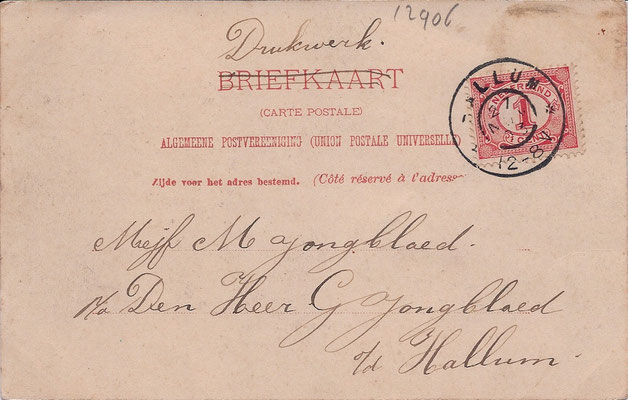 12906
Drukwerk.
BRIEFKAART
(CARTE POSTALE)
ALGEMEENE POSTVEREENIGING (UNION POSTALE UNIVERSELLE)
Zijde voor het adres bestemd. (Côté réservé à l'adresse
HALLUM
NEDERLAND
1
12-8
Mejf M Jongbloed.
p/a Den Heer G Jongbloed
t/d Hallum.